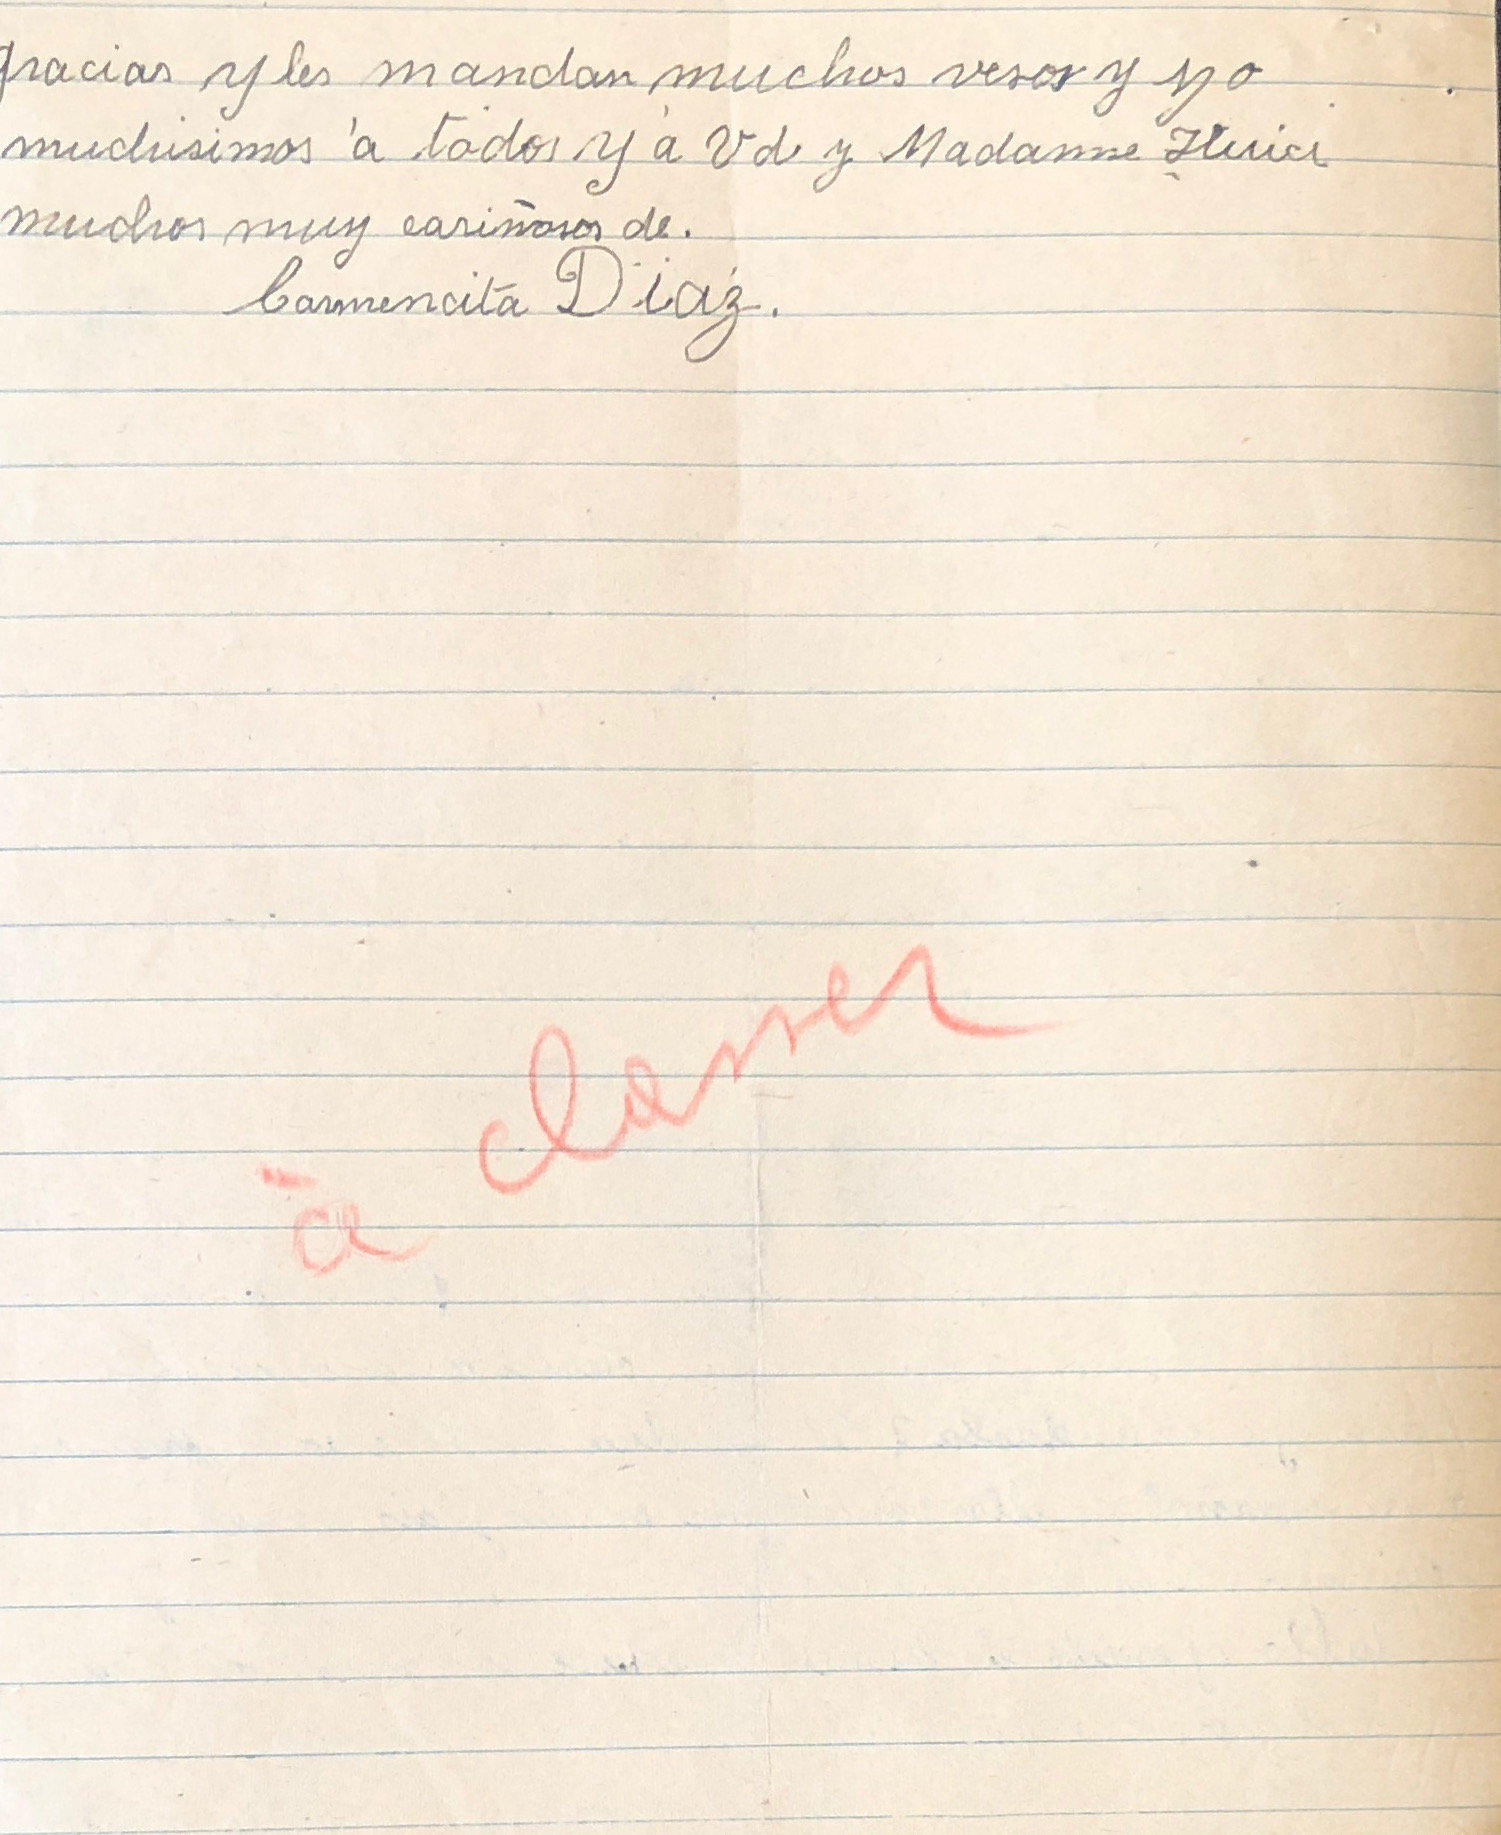 gracias y les mandan muchos vesos y yo
muchisimos à todos y à Vd y Madamme
muchos muy cariñosos de.
Carmencita Diaz.
à classer